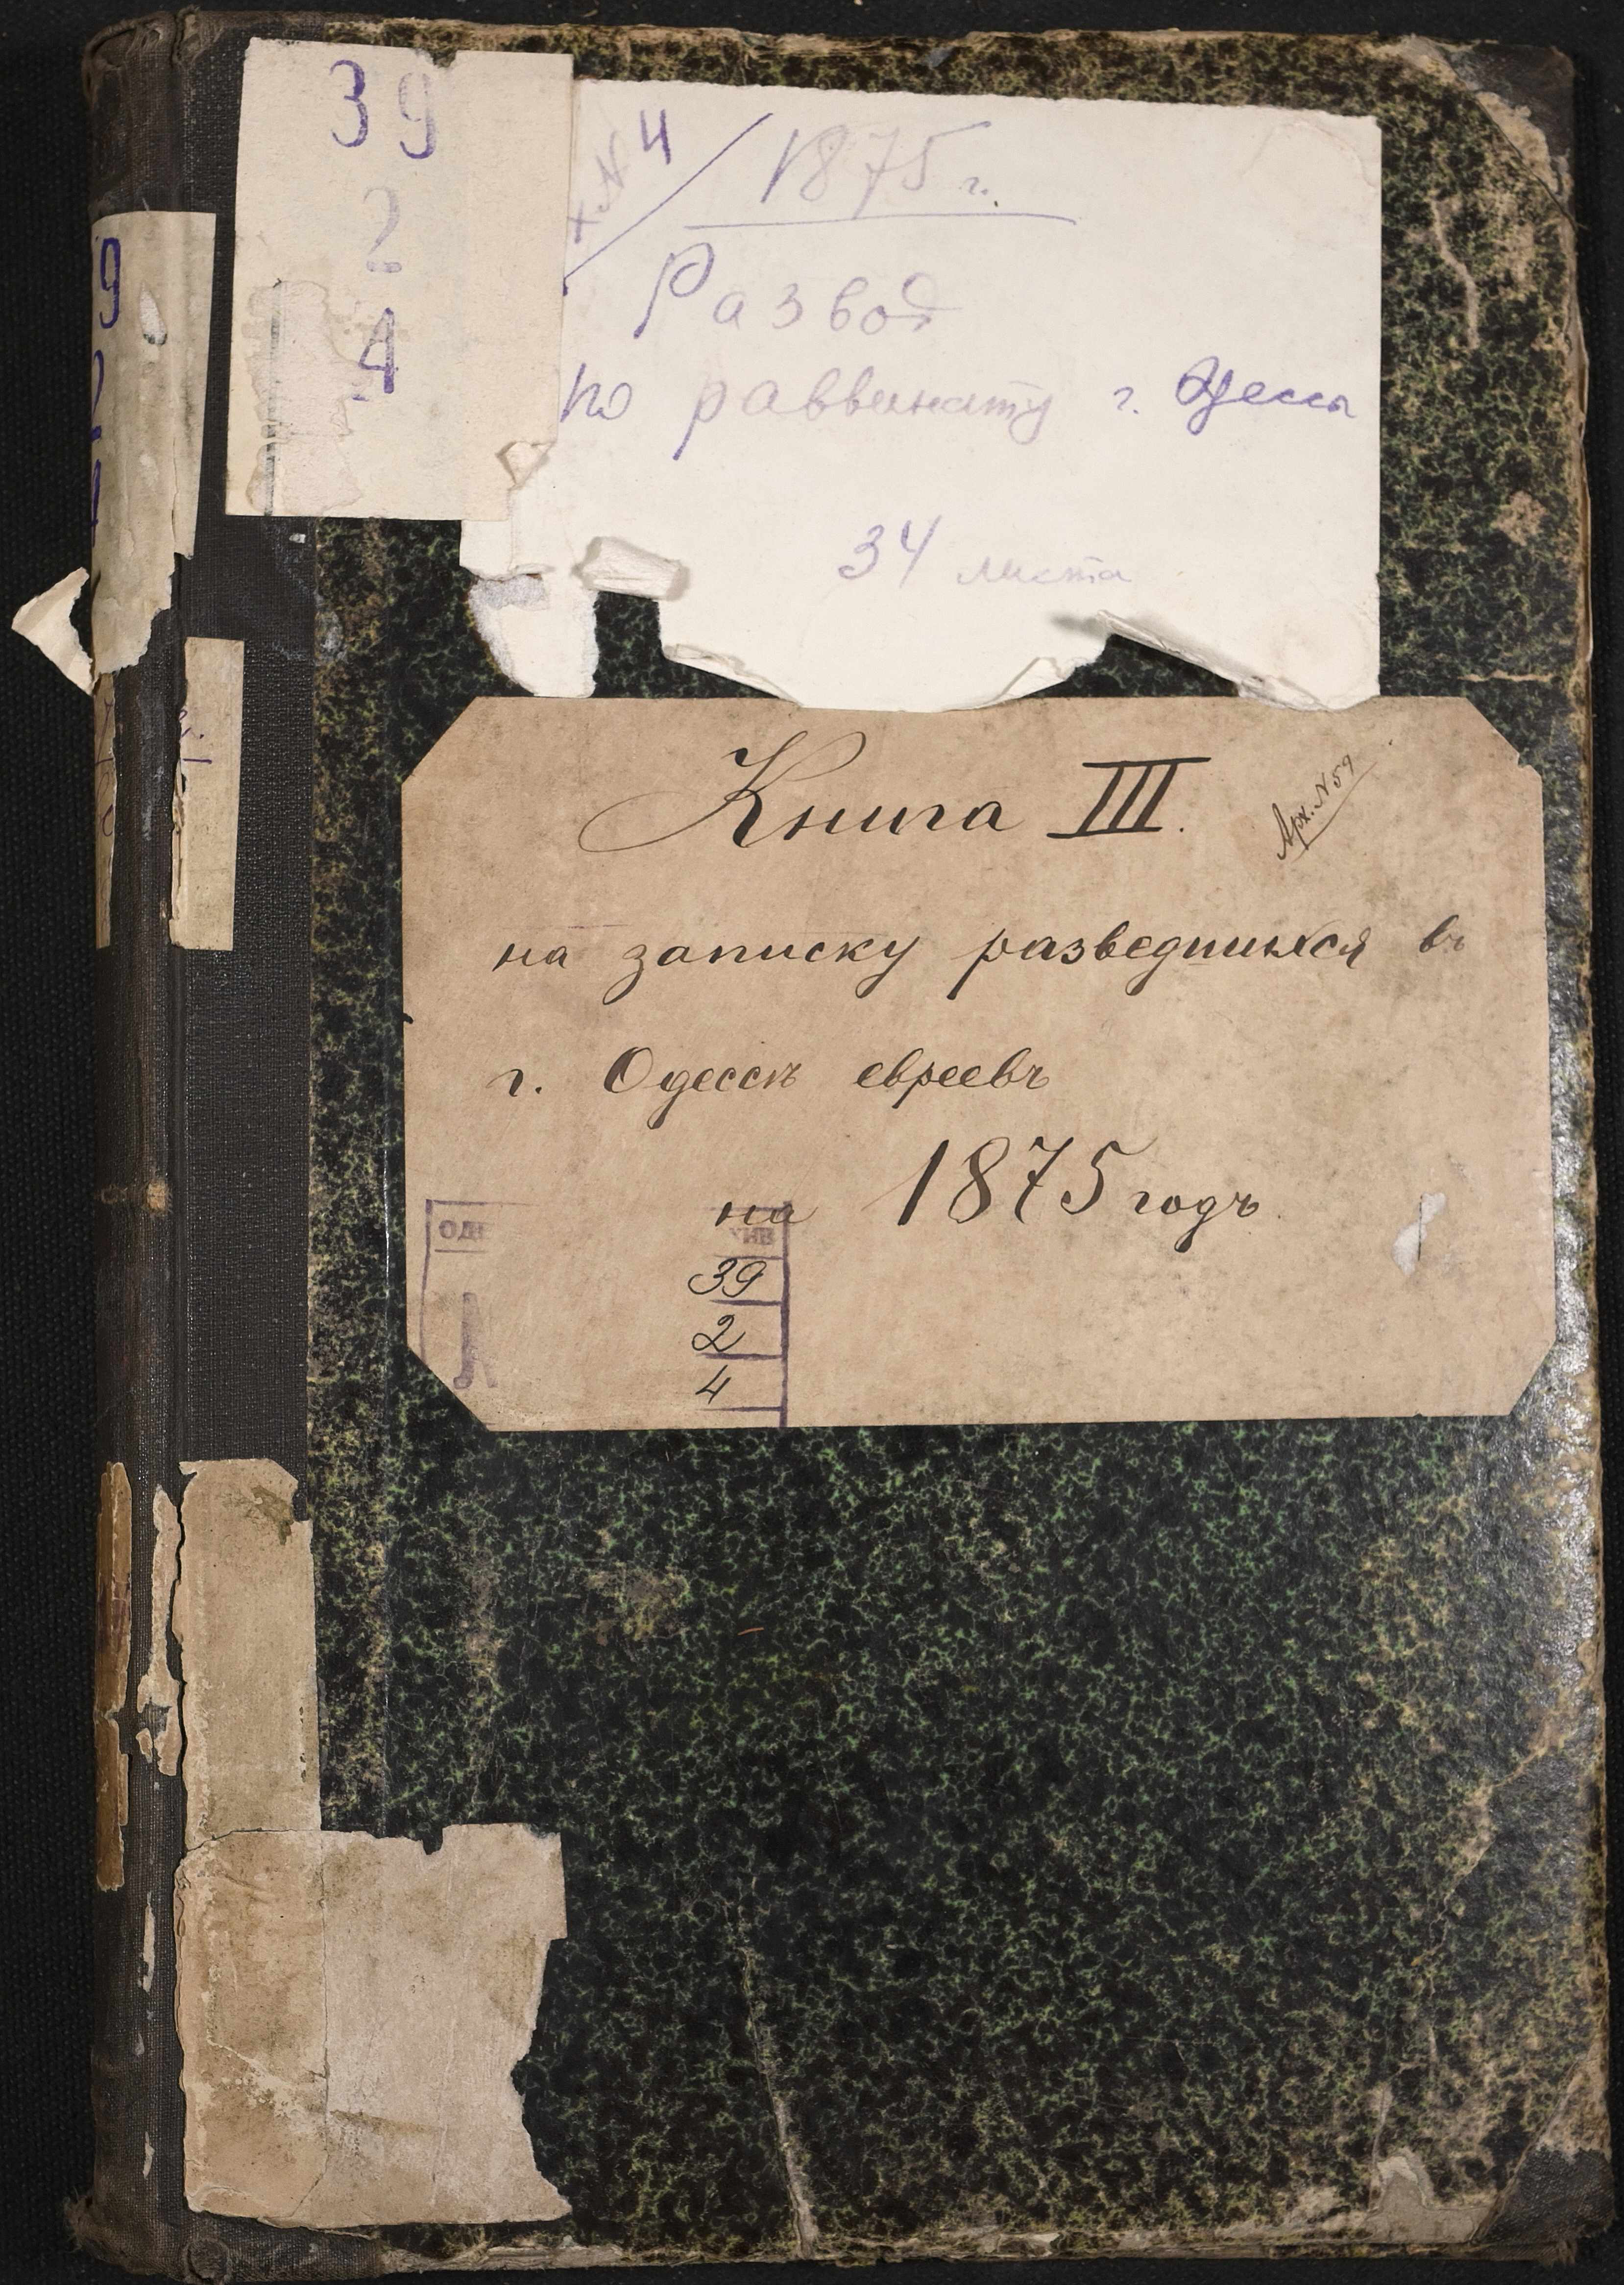 39
2
4
х. N 4
1875 г.
Развод
по раввинату г. Одессы
34 листа
9
2
Книга III.
Арх. N 59
на записку разведшихся въ
г. Одессѣ евреевъ
на 1875 годъ
39
2
4